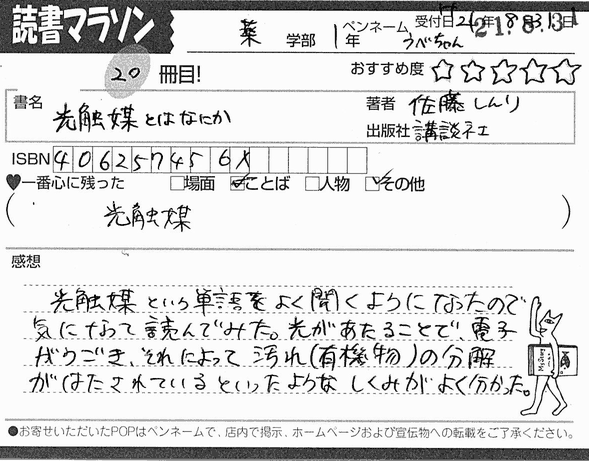 読書マラソン 薬 学部 1年 ペンネーム うべちゃん 受付日 H21年 8月31日
21. 8. 31
20 冊目! おすすめ度 ☆☆☆☆☆
書名 光触媒とはなにか 著者 佐藤しんり
出版社 講談社
ISBN 406257456X
♥一番心に残った □場面 ☑ことば □人物 ☑その他
( 光触媒 )
感想
光触媒という単語をよく聞くようになったので
気になって読んでみた。光があたることで、電子
がうごき、それによって汚れ(有機物)の分解
がはたされているといったようなしくみがよく分かった。
●お寄せいただいたPOPはペンネームで、店内で掲示、ホームページおよび宣伝物への転載をご了承ください。